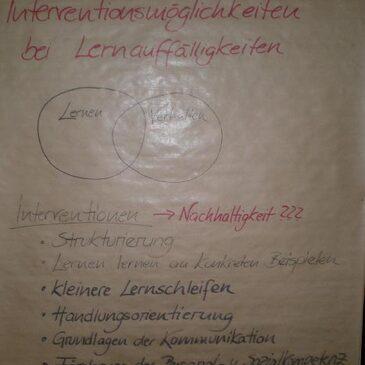 Interventionsmöglichkeiten
bei Lernauffälligkeiten
Lernen
Verhalten
Interventionen → Nachhaltigkeit ???
• Strukturierung
• Lernen lernen an konkreten Beispielen
• kleinere Lernschleifen
• Handlungsorientierung
• Grundlagen der Kommunikation
• der Sozialkompetenz